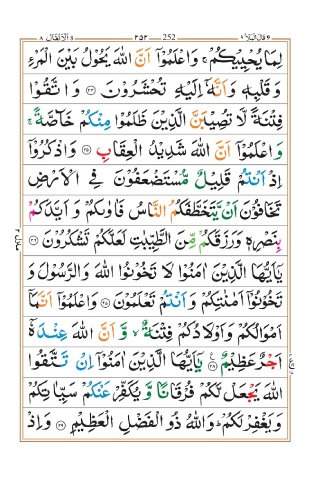 قال الملا ٩ 252 ٢٥٢ الانفال ٨
لِمَا يُحْيِيْكُمْ ۚ وَاعْلَمُوْۤا اَنَّ اللّٰهَ يَحُوْلُ بَيْنَ الْمَرْءِ
وَقَلْبِهٖ وَاَنَّهٗۤ اِلَيْهِ تُحْشَرُوْنَ ﴿۲۴﴾ وَاتَّقُوْا
فِتْنَةً لَّا تُصِيْبَنَّ الَّذِيْنَ ظَلَمُوْا مِنْكُمْ خَآصَّةً ۚ
وَاعْلَمُوْۤا اَنَّ اللّٰهَ شَدِيْدُ الْعِقَابِ ﴿۲۵﴾ وَاذْكُرُوْۤا
اِذْ اَنْتُمْ قَلِيْلٌ مُّسْتَضْعَفُوْنَ فِى الْاَرْضِ
تَخَافُوْنَ اَنْ يَّتَخَطَّفَكُمُ النَّاسُ فَاٰوٰىكُمْ وَاَيَّدَكُمْ
بِنَصْرِهٖ وَرَزَقَكُمْ مِّنَ الطَّيِّبٰتِ لَعَلَّكُمْ تَشْكُرُوْنَ ﴿۲۶﴾
يٰۤاَيُّهَا الَّذِيْنَ اٰمَنُوْا لَا تَخُوْنُوا اللّٰهَ وَالرَّسُوْلَ وَ
تَخُوْنُوْۤا اَمٰنٰتِكُمْ وَاَنْتُمْ تَعْلَمُوْنَ ﴿۲۷﴾ وَاعْلَمُوْۤا اَنَّمَاۤ
اَمْوَالُكُمْ وَاَوْلَادُكُمْ فِتْنَةٌ ۙ وَّاَنَّ اللّٰهَ عِنْدَهٗۤ
اَجْرٌ عَظِيْمٌ ﴿۲۸﴾ يٰۤاَيُّهَا الَّذِيْنَ اٰمَنُوْۤا اِنْ تَتَّقُوا
اللّٰهَ يَجْعَلْ لَّكُمْ فُرْقَانًا وَّيُكَفِّرْ عَنْكُمْ سَيِّاٰتِكُمْ
وَيَغْفِرْ لَكُمْ ؕ وَاللّٰهُ ذُو الْفَضْلِ الْعَظِيْمِ ﴿۲۹﴾ وَاِذْ